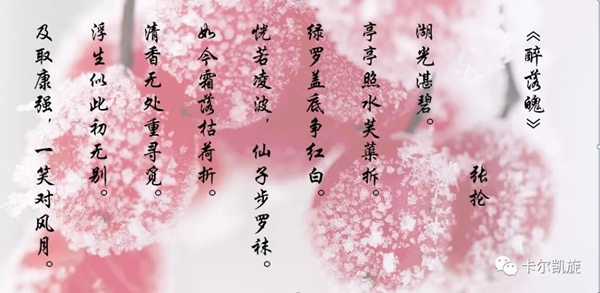 《醉落魄》
张抡
湖光湛碧。
亭亭照水芙蕖拆。
绿罗盖底争红白。
恍若凌波，仙子步罗袜。
如今霜落枯荷折。
清香无处重寻觅。
浮生似此初无别。
及取康强，一笑对风月。
卡尔凯旋